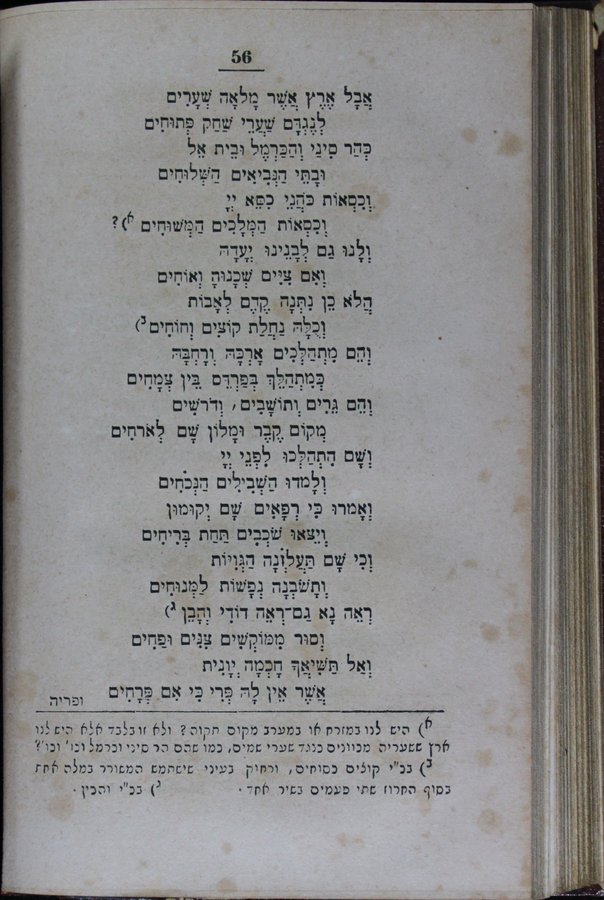 56
אֲבָל אֶרֶץ אֲשֶׁר מָלְאָה שְׁעָרִים
לְנֶגְדָּם שַׁעֲרֵי שַׁחַק פְּתוּחִים
כְּהַר סִינַי וְהַכַּרְמֶל וּבֵית אֵל
וּבָתֵּי הַנְּבִיאִים הַשְּׁלוּחִים
וְכִסְאוֹת כֹּהֲנֵי כִסֵּא יְיָ
וְכִסְאוֹת הַמְּלָכִים הַמְּשׁוּחִים א)?
וְלָנוּ גַם לְבָנֵינוּ יְעָדָהּ
וְאִם צִיִּים שְׁכָנוּהָ וְאוֹחִים
הֲלֹא כֵן נִתְּנָה קֶדֶם לְאָבוֹת
וְכֻלָּהּ נַחֲלַת קוֹצִים וְחוֹחִים ב)
וְהֵם מִתְהַלְּכִים אָרְכָּהּ וְרָחְבָּהּ
כְּמִתְהַלֵּךְ בְּפַרְדֵּס בֵּין צְמָחִים
וְהֵם גֵּרִים וְתוֹשָׁבִים, וְדוֹרְשִׁים
מְקוֹם קֶבֶר וּמָלוֹן שָׁם לְאֹרְחִים
וְשָׁם הִתְהַלְּכוּ לִפְנֵי יְיָ
וְלָמדוּ הַשְּׁבִילִים הַנְּכֹחִים
וְאָמרוּ כִּי רְפָאִים שָׁם יְקוּמוּן
וְיֵצאוּ שֹׁכְבִים תַּחַת בְּרִיחִים
וְכִי שָׁם תַּעֲלֹזְנָה הַגְּוִיּוֹת
וְתָשֹׁבְנָה נְפָשׁוֹת לַמְּנוּחִים
רְאֵה נָא גַם־רְאֵה דוֹדִי וְהָבֵן ג)
וְסוּר מִמּוֹקְשִׁים צִנִּים וּפַחִים
וְאַל תַּשִּׁיאֲךָ חָכְמָה יְוָנִית
אֲשֶׁר אֵין לָהּ פְּרִי כִּי אִם פְּרָחִים
ופריה
א) היש לנו במזרח או במערב מקום תקוה? ולא זו בלבד אלא היש לנו
ארץ ששעריה מכוונים כנגד שערי שמים, כמו שהם הר סיני וכרמל וכו' וכו'?
ב) בכ"י קולים כסוחים, ורחוק בעיני שישתמש המשורר במלה אחת
בסוף החרוז שתי פעמים בשיר אחד. ג) בכ"י והכין.